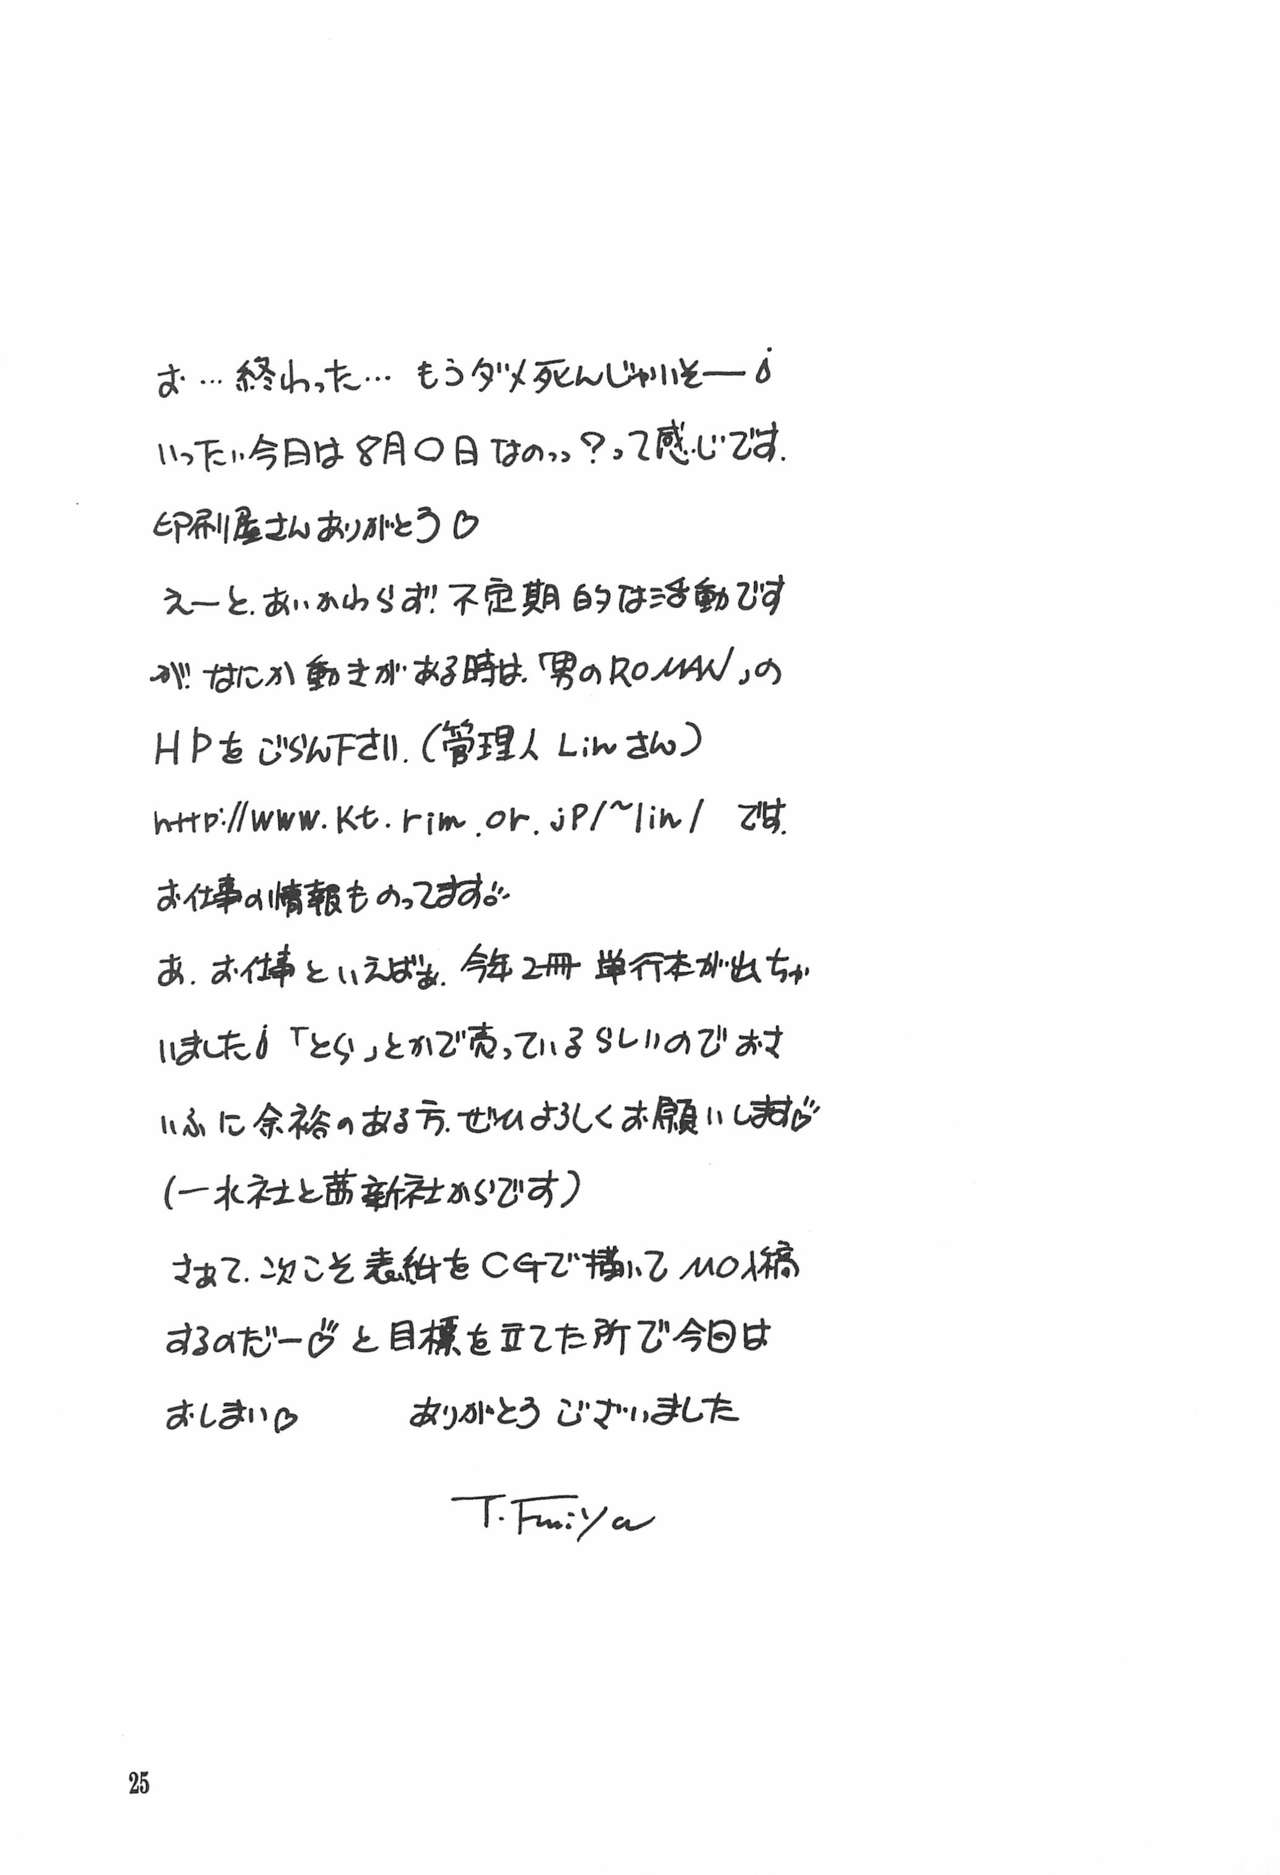 お…終わった… もうダメ死んじゃいそー
いったい今日は8月〇日なのっっ?って感じです.
印刷屋さんありがとう♡
えーと、あいかわらず不定期的な活動です
が、なにか動きがある時は、「男のROMAN」の
HPをごらん下さい.(管理人Linさん)
http://www.kt.rim.or.jp/~lin/ です.
お仕事の情報ものってます
あ、お仕事といえばぁ、今年2冊 単行本が出ちゃ
いました 「とら」とかで売っているらしいのでおさ
いふに余裕のある方、ぜひよろしくお願いします♡
(一水社と茜新社からです)
さぁて、次こそ表紙をCGで描いてMO入稿
するのだー♡ と目標を立てた所で今日は
おしまい♡ ありがとうございました
T.Fujiya
25